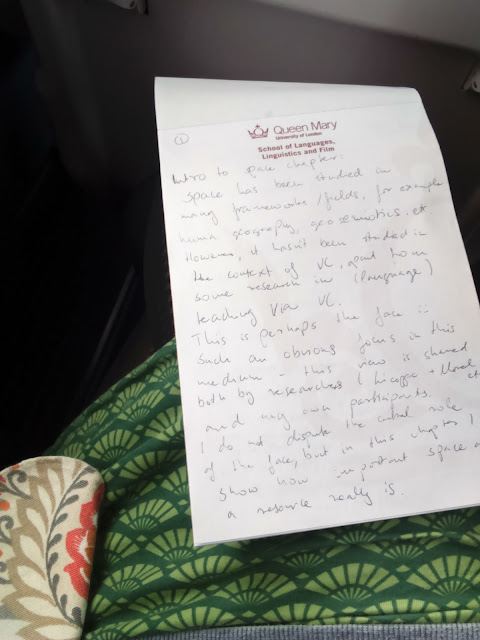 ①
Queen Mary
University of London
School of Languages,
Linguistics and Film
Intro to space chapter:
Space has been studied in
many frameworks/fields, for example
human geography, geosemiotics, etc
However, it hasn't been studied in
the context of VC, apart from
some research in (language)
teaching via VC.
This is perhaps the face is
such an obvious focus in this
medium - this view is shared
both by researchers (Licoppe + Morel, etc
and my own participants.
I do not dispute the central role
of the face, but in this chapter I
show how important space as
a resource really is.